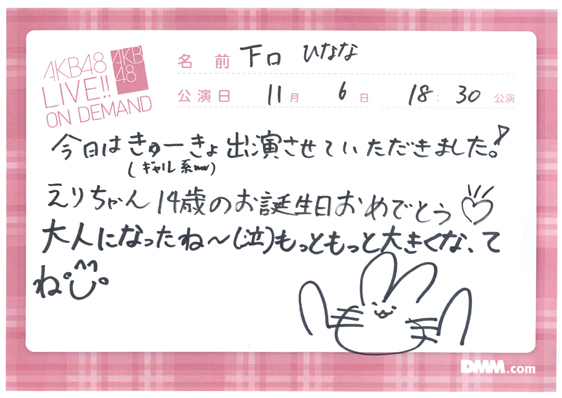 AKB48
LIVE!!
ON DEMAND
AKB
48
名前 下口 ひなな
公演日 11月 6日 18:30 公演
今日はきゅーきょ出演させていただきました。
(ギャル系ww)
えりちゃん14歳のお誕生日おめでとう
大人になったね〜(泣)もっともっと大きくなって
ね。
DMM.com